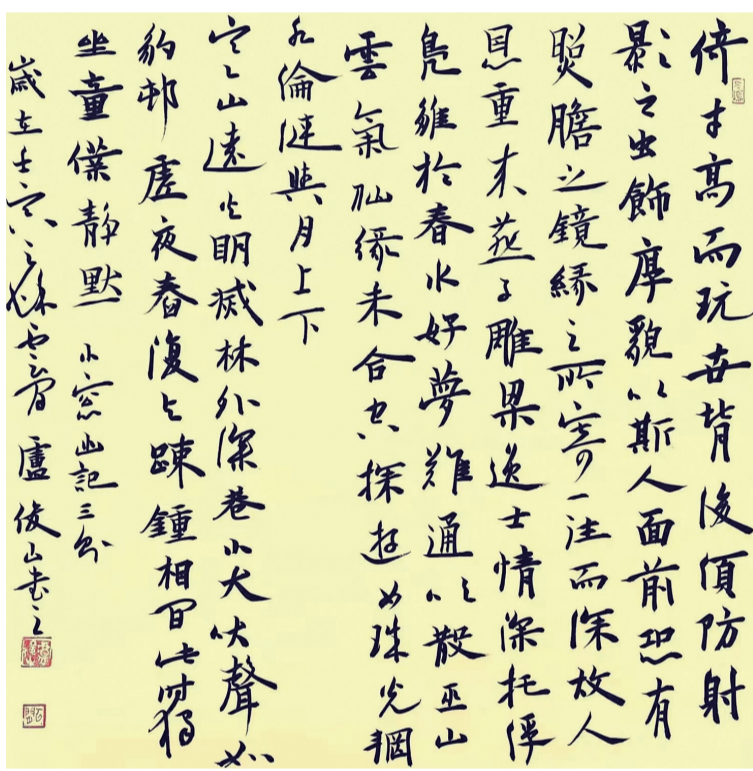 倚才高而玩世背後須防射
影之虫飾厚貌以斯人面前恐有
照膽之鏡緣之所寄一往而深故人
恩重來燕子雕梁逸士情深托俘
鳧雛於春水好夢難通吹散巫山
雲氣仙緣未合空探遊女珠光輞
水淪漣與月上下
寒山遠火明滅林外深巷小犬吠聲如
豹村墟夜舂復與疎鐘相間此時獨
坐童僕靜默 小窓幽記三則
歲在壬寅之秋雲間盧俊山書之